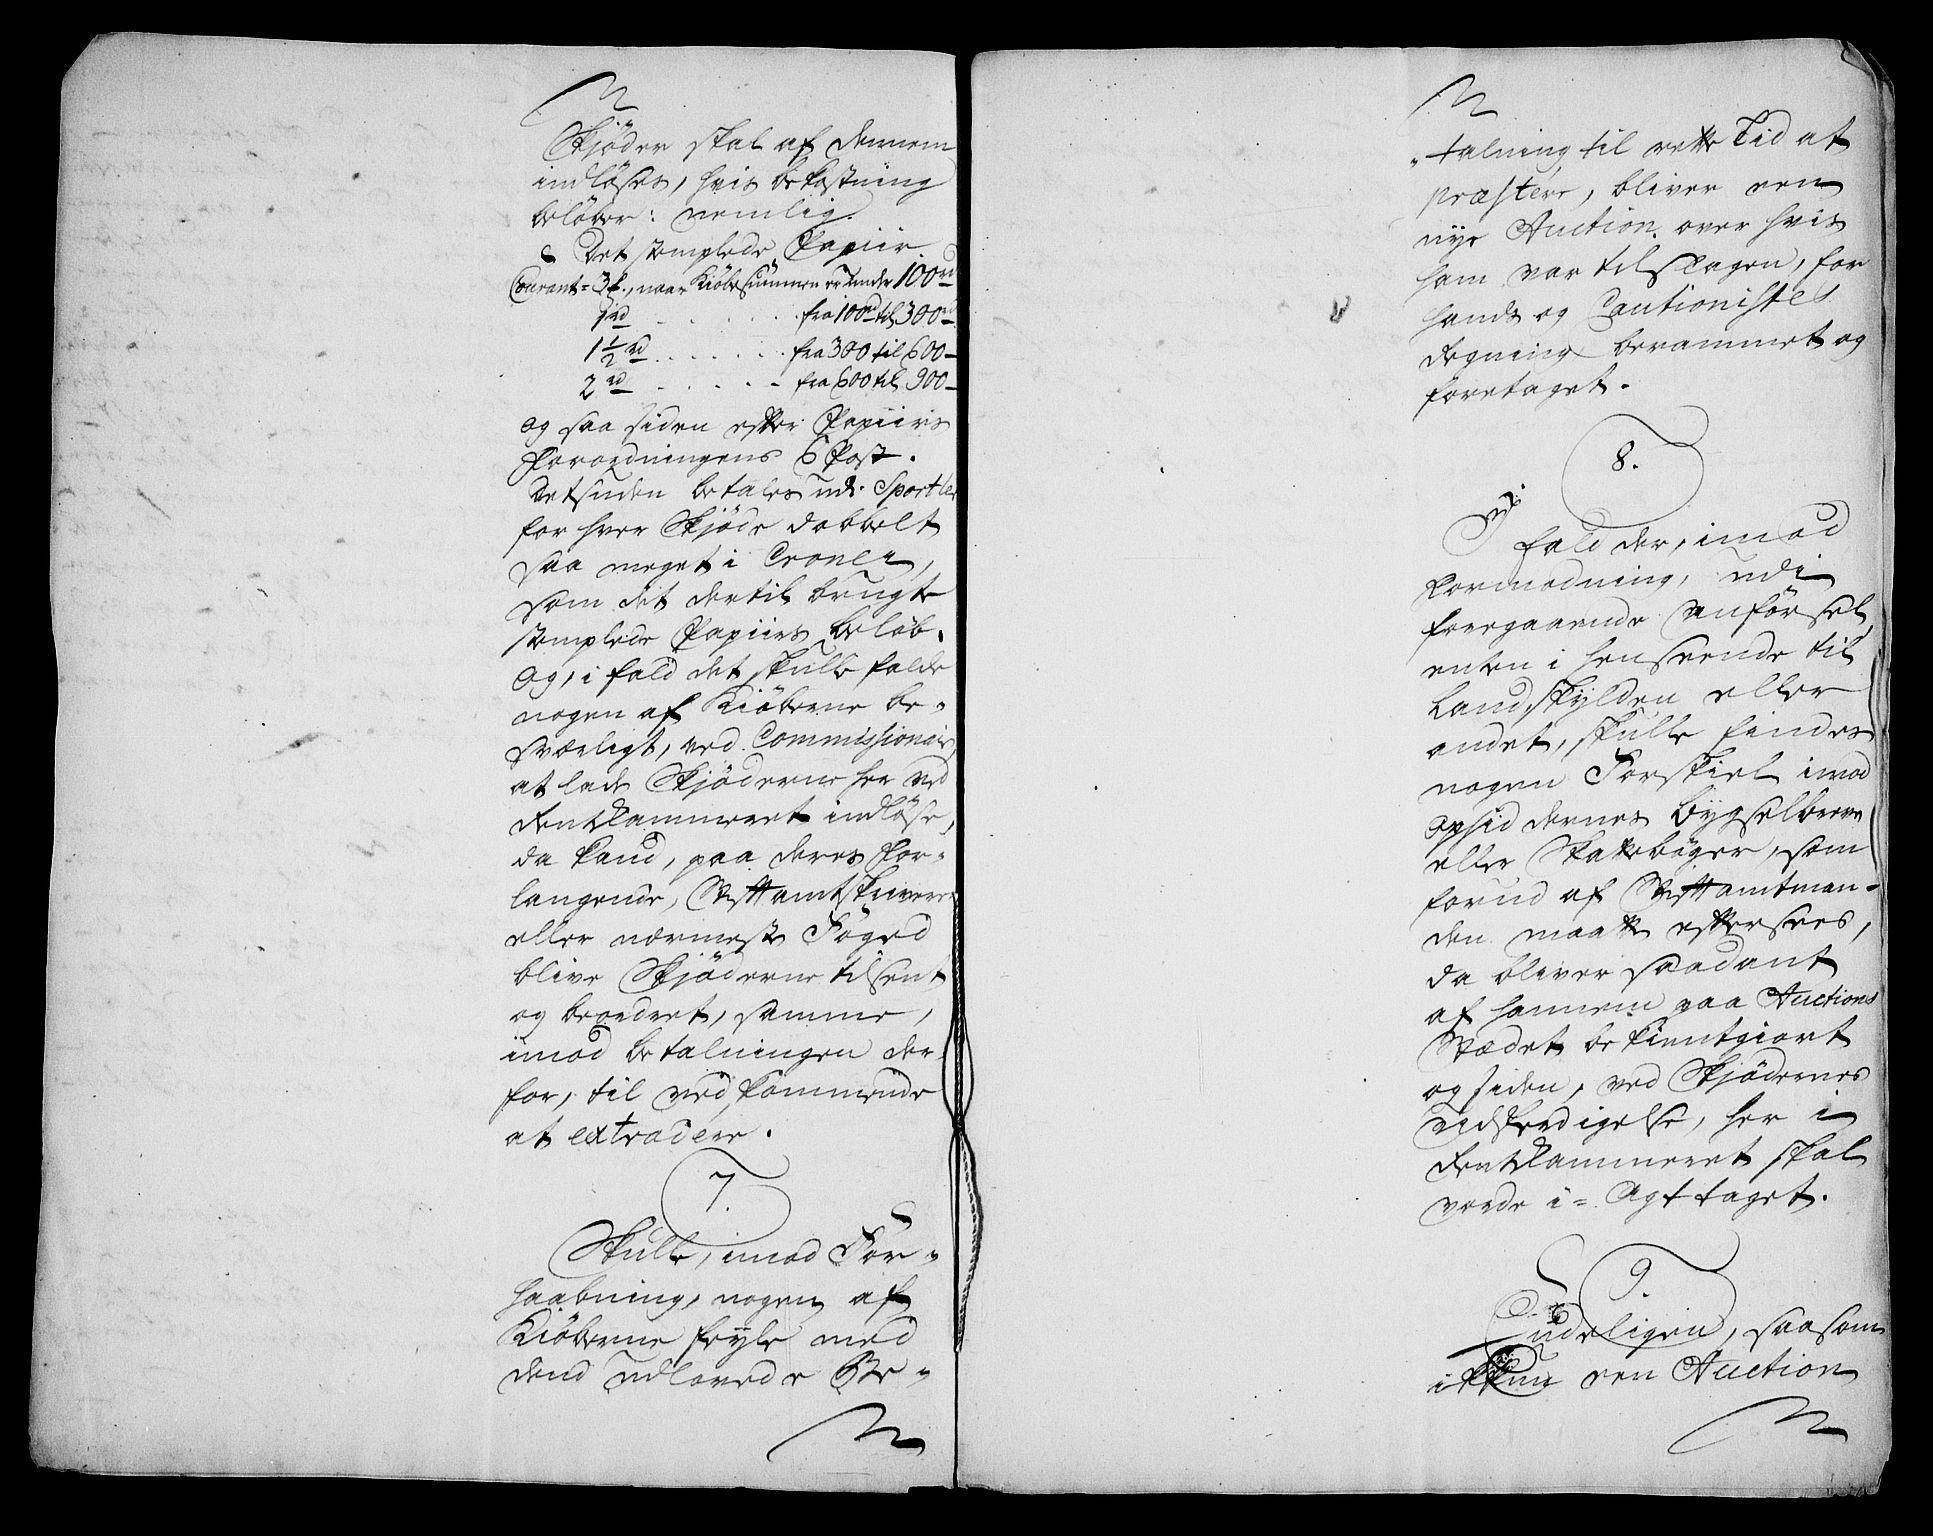 Skjöder skal af dennem
indlöses, hvis bekostning
belöber: nemlig.
Det stemplede Papiir
Courant = 3 ƒ., naar Kiöbesummen er under 100 rd
1 rd . . . . . . fra 100 rd til 300 rd
1 1/2 rd . . . . . . fra 300 til 600 –
2 rd . . . . . fra 600 til 900 –
og saa siden efter Papiirs
Forordningens 6 Post.
Desuden betales udi Sportler
for hver Skjöde dobbelt
saa meget i Croner,
som det dertil brugte
stemplede Papiirs belöb.
Og, i fald det skulle falde
nogen af Kiöberne be-
sværligt, ved Commissionair
at lade Skjöderne her ved
Rentekammeret indlöse,
da kand, paa deres For-
langende, Stiftamtskriveren
eller nærmeste Foged
blive Skjöderne tilsent
og beordret, samme,
imod betalningen der-
for, til vedkommende
at extradere.
7.
Skulle, imod For-
haabning, nogen af
Kiöberne feyle med
dend udlovede Be-
talning til rette Tid at
præstere, bliver een
nye Auction over hvis
ham var tilslagen, for
hands og Cautionistes
Regning berammet og
foretaget.
8.
I fald der, imod
Formodning, udi
foregaaende Anförsel,
enten i henseende til
Landskylden eller
andet, skulle findes
nogen Forskiel imod
Opsiddernes bygselbreve
eller Skattebøger, som
forud af Stiftamtman-
den maatte eftersees,
da bliver saadant
af hannem paa Auctions
Stædet bekientgiort
og siden, ved Skjödernes
Udferdigelse, her i
Rentekammeret skal
vorde i= Agt taget.
9.
Endeligen, saasom
ikkun een Auction